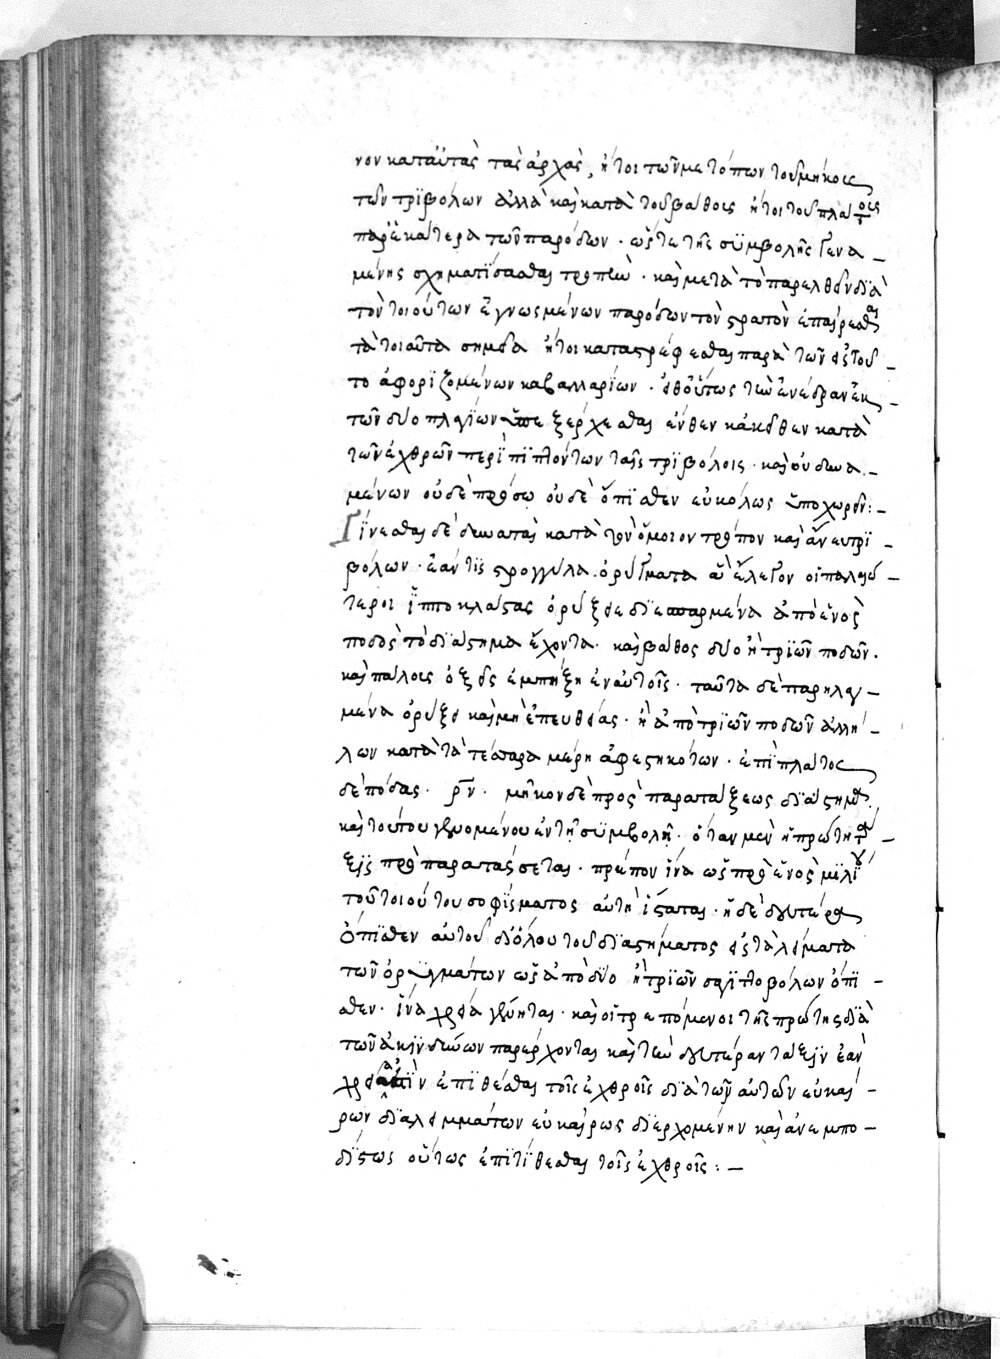 νον κατ' αὐτὰς τὰς ἀρχὰς, ἤτοι τῶν μετόπων τοῦ μήκους
τῶν τριβόλων ἀλλὰ καὶ κατὰ τοῦ βάθους ἤτοι τοῦ πλάτους
παρ' ἑκάτερα τῶν παρόδων· ὥστε τῆς συμβολῆς γενα-
μένης σχηματίσασθαι τροπὴν· καὶ μετὰ τὸ παρελθεῖν διὰ
τὸν τοιούτων ἐγνωσμένων παρόδων τὸν στρατὸν ἐπαίρεσθαι
τὰ τοιαῦτα σημεῖα ἤτοι καταστρέφεσθαι παρὰ τῶν εἰς τοῦ-
το ἀφοριζομένων καβαλλαρίων· εἶθ' οὕτως τὴν ἐνέδραν ἐκ
τῶν δύο πλαγίων ἐπεξέρχεσθαι ἔνθεν κἀκεῖθεν κατὰ
τῶν ἐχθρῶν περιπιπτόντων ταῖς τριβόλοις· καὶ οὐ δυνα-
μένων οὐδὲ πρόσω οὐδὲ ὄπισθεν εὐκόλως ὑποχωρεῖν:-
Γίνεσθαι δὲ δυνατὰι κατὰ τὸν ὅμοιον τρόπον καὶ ἄνευ τρι-
βόλων· ἐάν τις στρογγύλα ὀρύγματα ἃ ἔλεγον οἱ παλαιό-
τεροι ἱπποκλάστας ὀρύξει διεσπαρμένα ἀπὸ ἑνὸς
ποδὸς τὸ διάστημα ἔχοντα· καὶ βάθος δύο ἢ τριῶν ποδῶν·
καὶ πάλους ὀξεῖς ἐμπήξη ἐν αὐτοῖς· ταῦτα δὲ παρηλαγ-
μένα ὀρύξει καὶ μὴ ἐπευθείας· ἢ ἀπὸ τριῶν ποδῶν ἀλλή-
λων κατὰ τὰ τέσσαρα μέρη ἀφεστηκότων· ἐπὶ πλάτος
δὲ πόδας· ρν· μῆκον δὲ πρὸς παρατάξεως διάστημα
καὶ τούτου γενομένου ἐν τῇ συμβολῇ· ὅταν μὲν ἡ πρώτη τά-
ξις προπαρατάσσεται· πρέπον ἵνα ὡς πρὸ ἑνὸς μιλίου
τοῦ τοιούτου σοφίσματος αὐτὴ ἵσταται· ἡ δὲ δευτέρα
ὄπισθεν αὐτοῦ δι' ὅλου τοῦ διαστήματος εἰς τὰ λείματα
τῶν ὀρυγμάτων ὡς ἀπὸ δύο ἢ τριῶν σαγιττοβόλων ὄπι-
σθεν· ἵνα χρεία γένηται· καὶ οἱ τρεπόμενοι τῆς πρώτης διὰ
τῶν ἀκινδύνων παρέρχονται καὶ τὴν δευτέραν τάξιν ἐὰν
ἐπιθέσθαι τοῖς ἐχθροῖς διὰ τῶν αὐτῶν εὐκαί-
ρων διαλειμμάτων εὐκαίρως διερχομένην καὶ ἀνεμπο-
δίστως οὕτως ἐπιτίθεσθαι τοῖς ἐχθροῖς:-